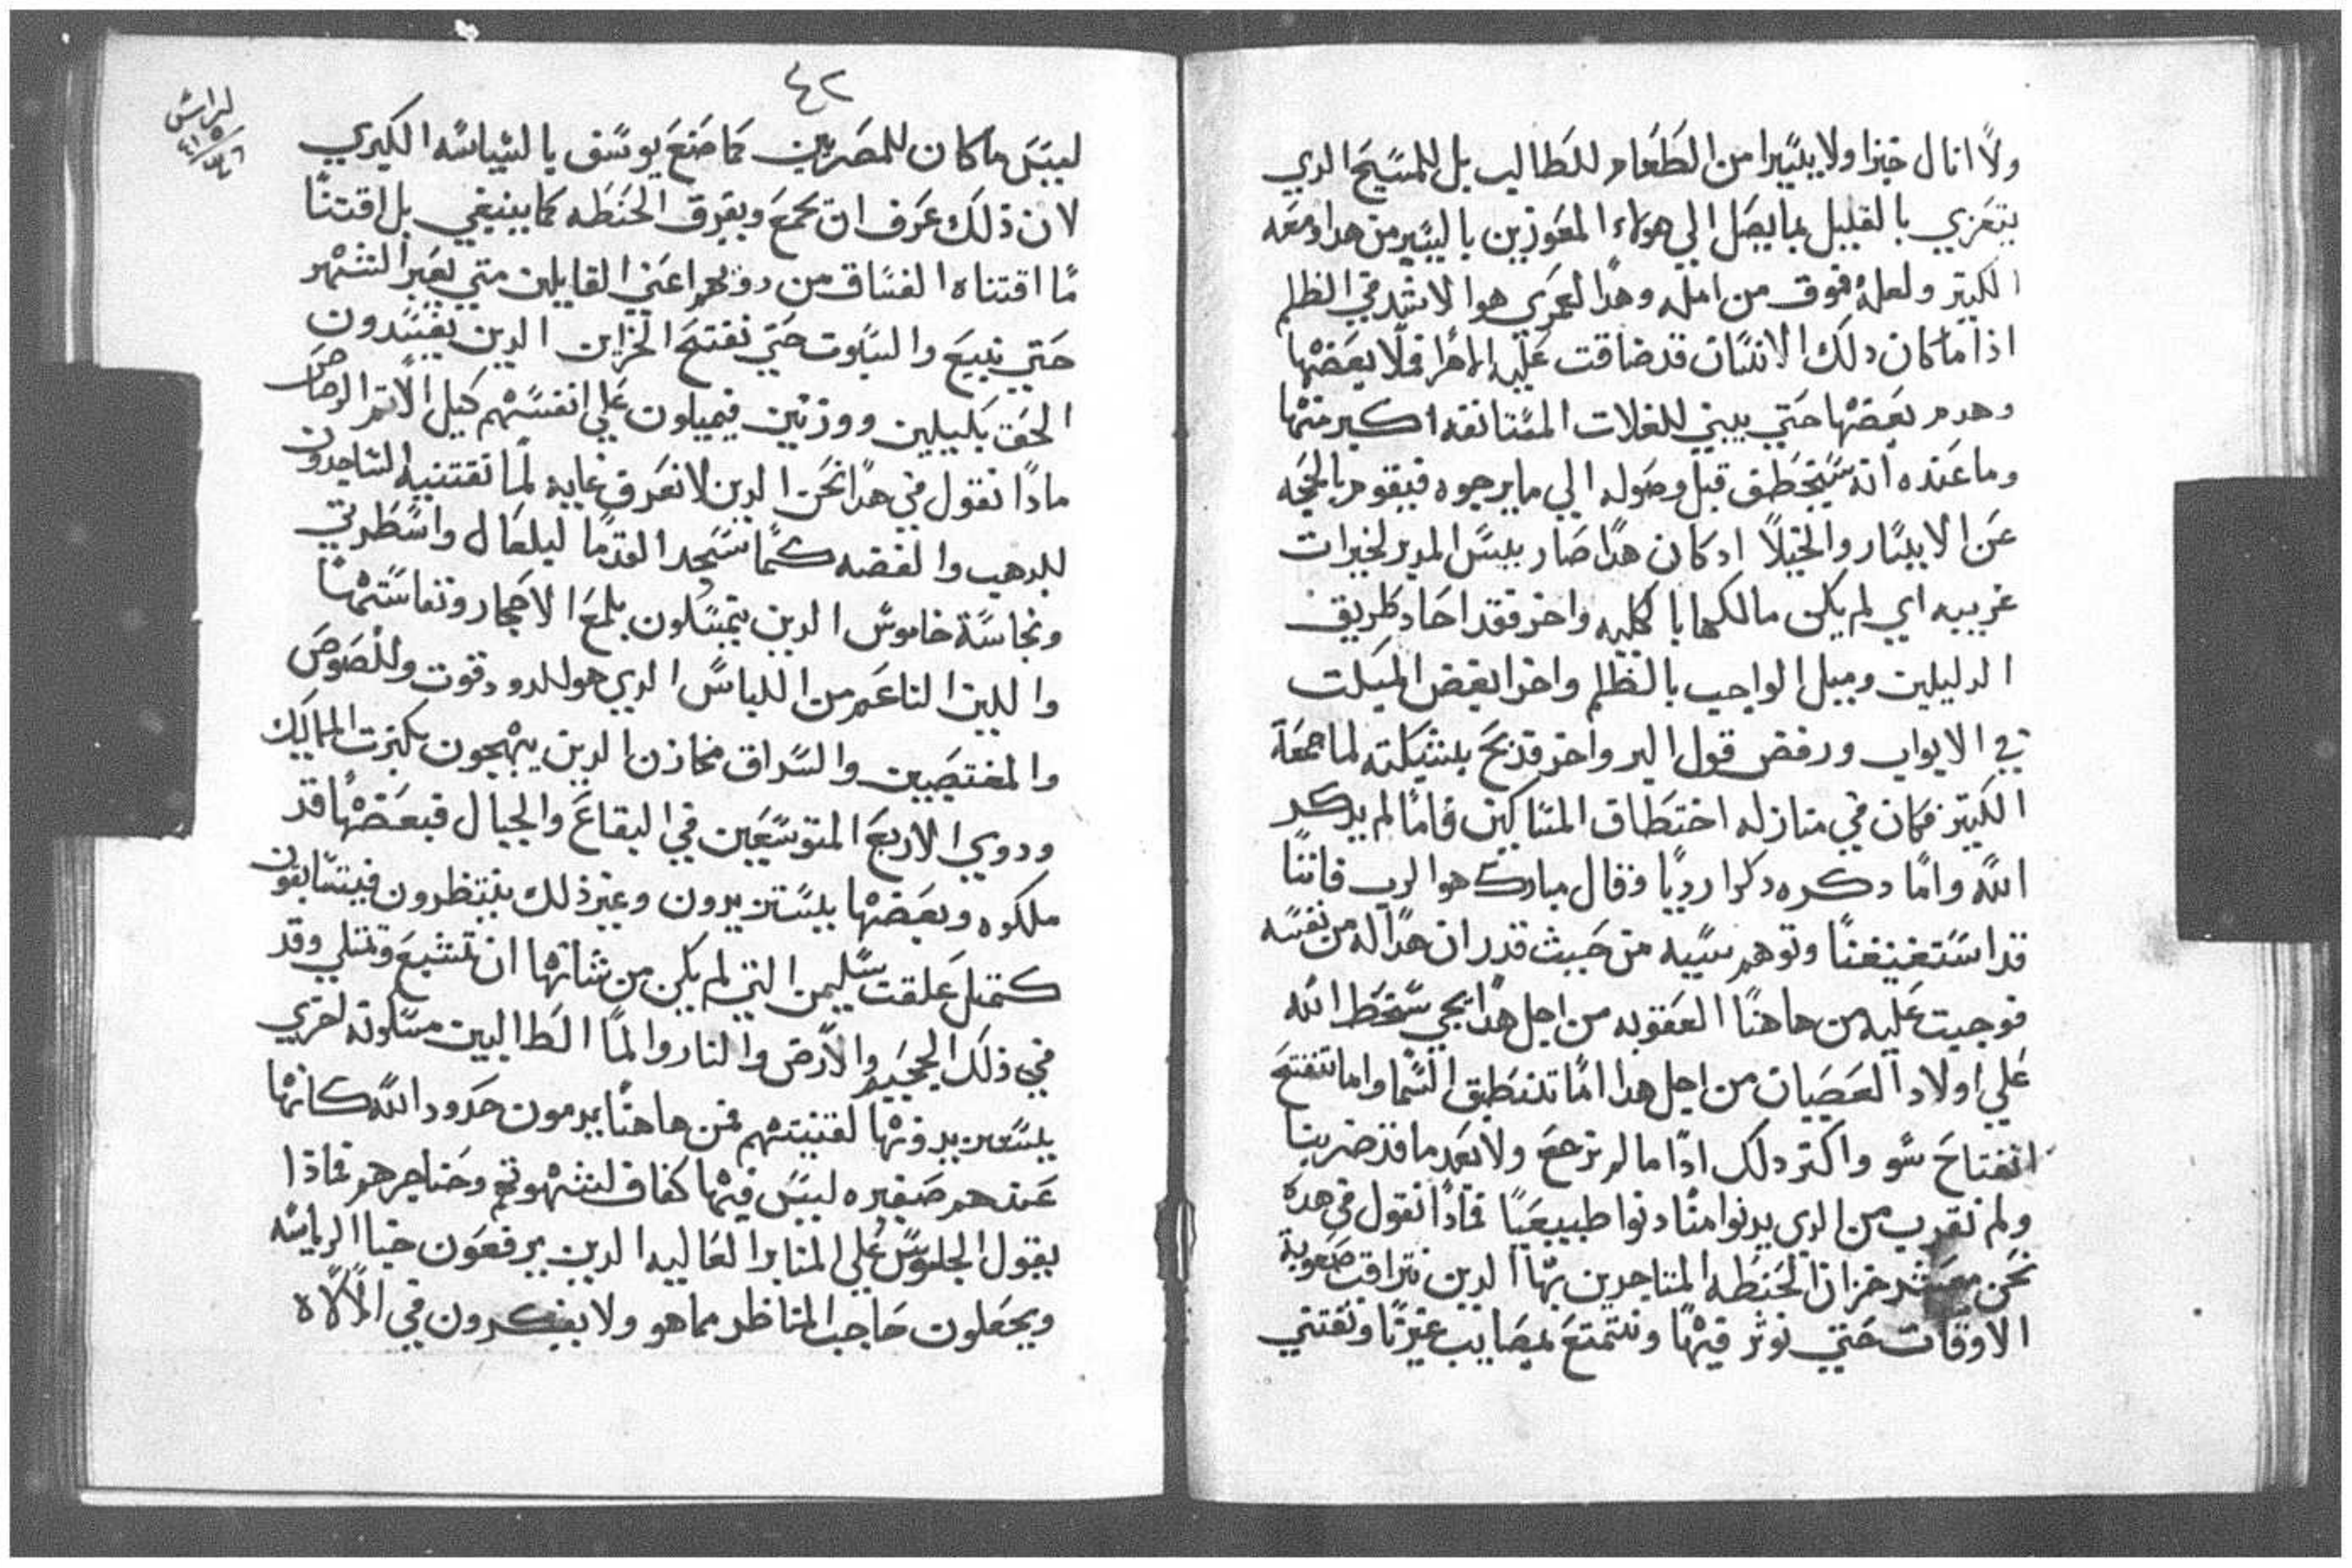 ولا انال خبزا ولا يسيرا من الطعام للطالب بل للمسيح الدي
يتعزي بالقليل بما يصل الي هولاء المعوزين باليسير من هدا ومعه
الكتير ولعله فوق من امله وهدا لعمري هو الاشد في الظلم
اذا ما كان دلك الانسان قد ضاقت عليه الاهرا فملا بعضها
وهدم بعضها حتي يبني للغلات المستانفه اكبر منها
وما عنده انه سيختطف قبل وصوله الي ما يرجوه فيقوم بالحجه
عن الايسار والخيلا اد كان هدا صار بيس المدبر لخيرات
غريبه اي لم يكن مالكها بالكليه واخر فقد احاد طريق
الدليلين وميل الواجب بالظلم واخر ابغض المبكت
في الابواب ورفض قول البر واخر قد بح بشبكته لما جمعة
الكتير فكان في منازله اختطاف المساكين فاما لم يدكر
الله واما دكره دكرا رديا وقال مبارك هو الرب فاننا
قد استغنينا وتوهم سييه من حيث قدر ان هدا له من نفسه
فوجبت عليه من هاهنا العقوبه من اجل هدا يجي سخط الله
علي اولاد العصيان من اجل هدا اما تنطبق السما واما تنفتح
انفتاح سو واكتر دلك ادا ما لم نرجع ولا بعد ما قد ضربنا
ولم نقرب من الدي يدنوا منا دنوا طبيعيا فمادا نقول في هده
نحن معشر خزان الحنطه المتاجرين بها الدين نتراقب صعوبة
الاوقات حتي نوثر فيها ونتمتع بمصايب غيرنا ونقتني
٤٢
ليس ما كان للمصريين كما صنع يوسف بالسياسه الكبري
لان ذلك عرف ان يجمع ويفرق الحنطه كما ينبغي بل اقتنا
ما اقتناه الفساق من اعني القايلين متي يعبر الشهر
حتي نبيع والسبوت حتي نفتتح الخزاين الدين يفسدون
الحق بكيلين ووزنين فيميلون علي انفسهم كيل الاتم الرصاص
مادا نقول في هدا نحن الدين لا نعرف غايه لما نقتنيه الساجدون
للدهب والفضه كما سجد القدما ليلعال واسطرتي
ونجاسة خاموس الدين يتمسكون بلمع الاحجار ونفاستها
واللين الناعم من اللباس الدي هو للدود قوت وللصوص
والمغتصبين والسراق مخازن الدين يبهجون بكترت المماليك
ودوي الاربع المتوسعين في البقاع والجبال فبعضها قد
ملكوه وبعضها يستزيدون وغير ذلك ينتظرون فيتسابقون
كمتل علقت سليمن التي لم يكن من شانها ان تشبع وتمتلي وقد
في ذلك الجحيم والارض والنار والما الطالبين مسكونه اخري
يستزيدونها لقنيتهم فمن هاهنا يدمون حدود الله كانها
عندهم صغيره ليس فيها كفاف لشهوتهم وحناجرهم فماذا
يقول الجلوس علي المنابر العاليه الدين يرفعون خبا الرياسه
ويجعلون حاجب المناظر مما هو ولا يفكرون في الالاه